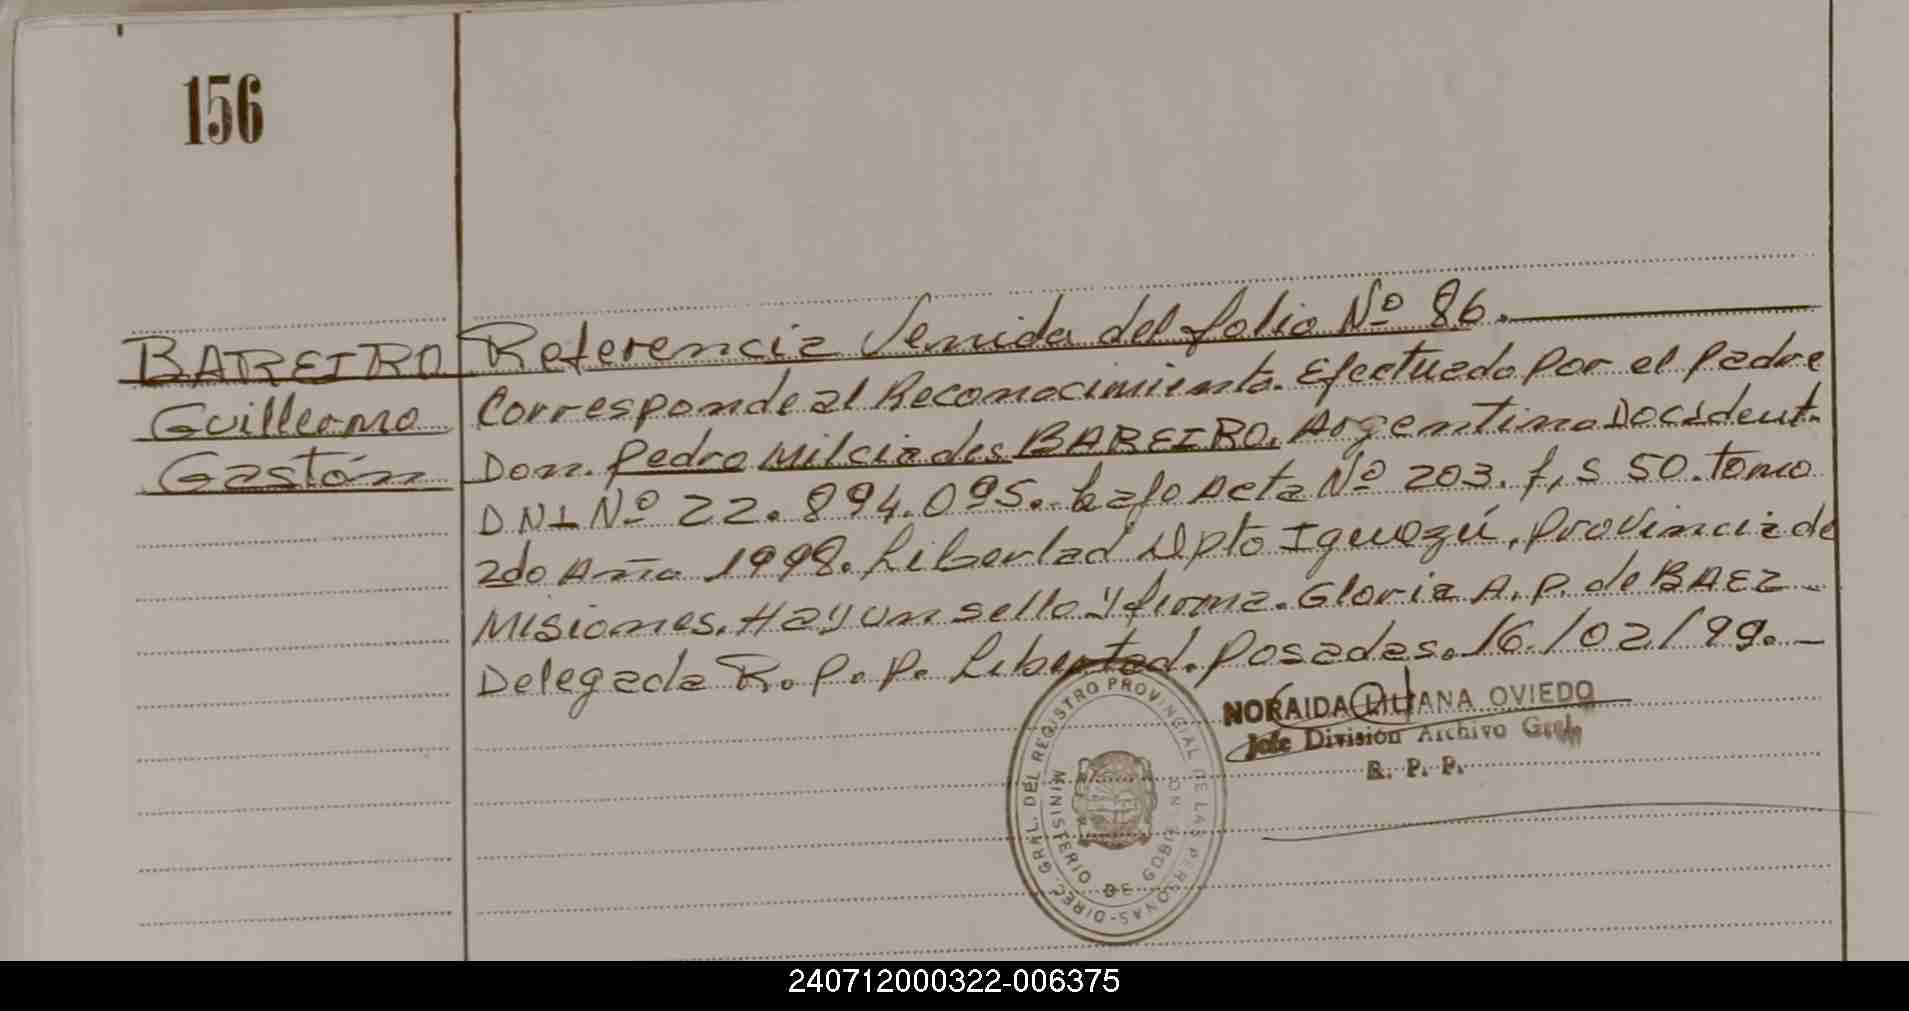 156
BAREIRO
Guillermo
Gastón
Referencia Venida del folio Nº 86.
Corresponde al Reconocimiento. Efectuado por el padre
Don. Pedro Milciades BAREIRO, Argentino Docident.
DNI Nº 22.894.095. bajo Acta Nº 203. f,s 50. tomo
2do Año 1998. Libertad Dpto Iguazú, provincia de
Misiones. Hay un sello y firma. Gloria A. P. de BAEZ
Delegada R. P. P. Libertad. Posadas. 16/02/99.-
NORAIDA LILIANA OVIEDO
Jefe División Archivo Gral.
R. P. P.
DIREC. GRAL. DEL REGISTRO PROVINCIAL DE LAS PERSONAS-
MINISTERIO DE GOBIERNO
240712000322-006375